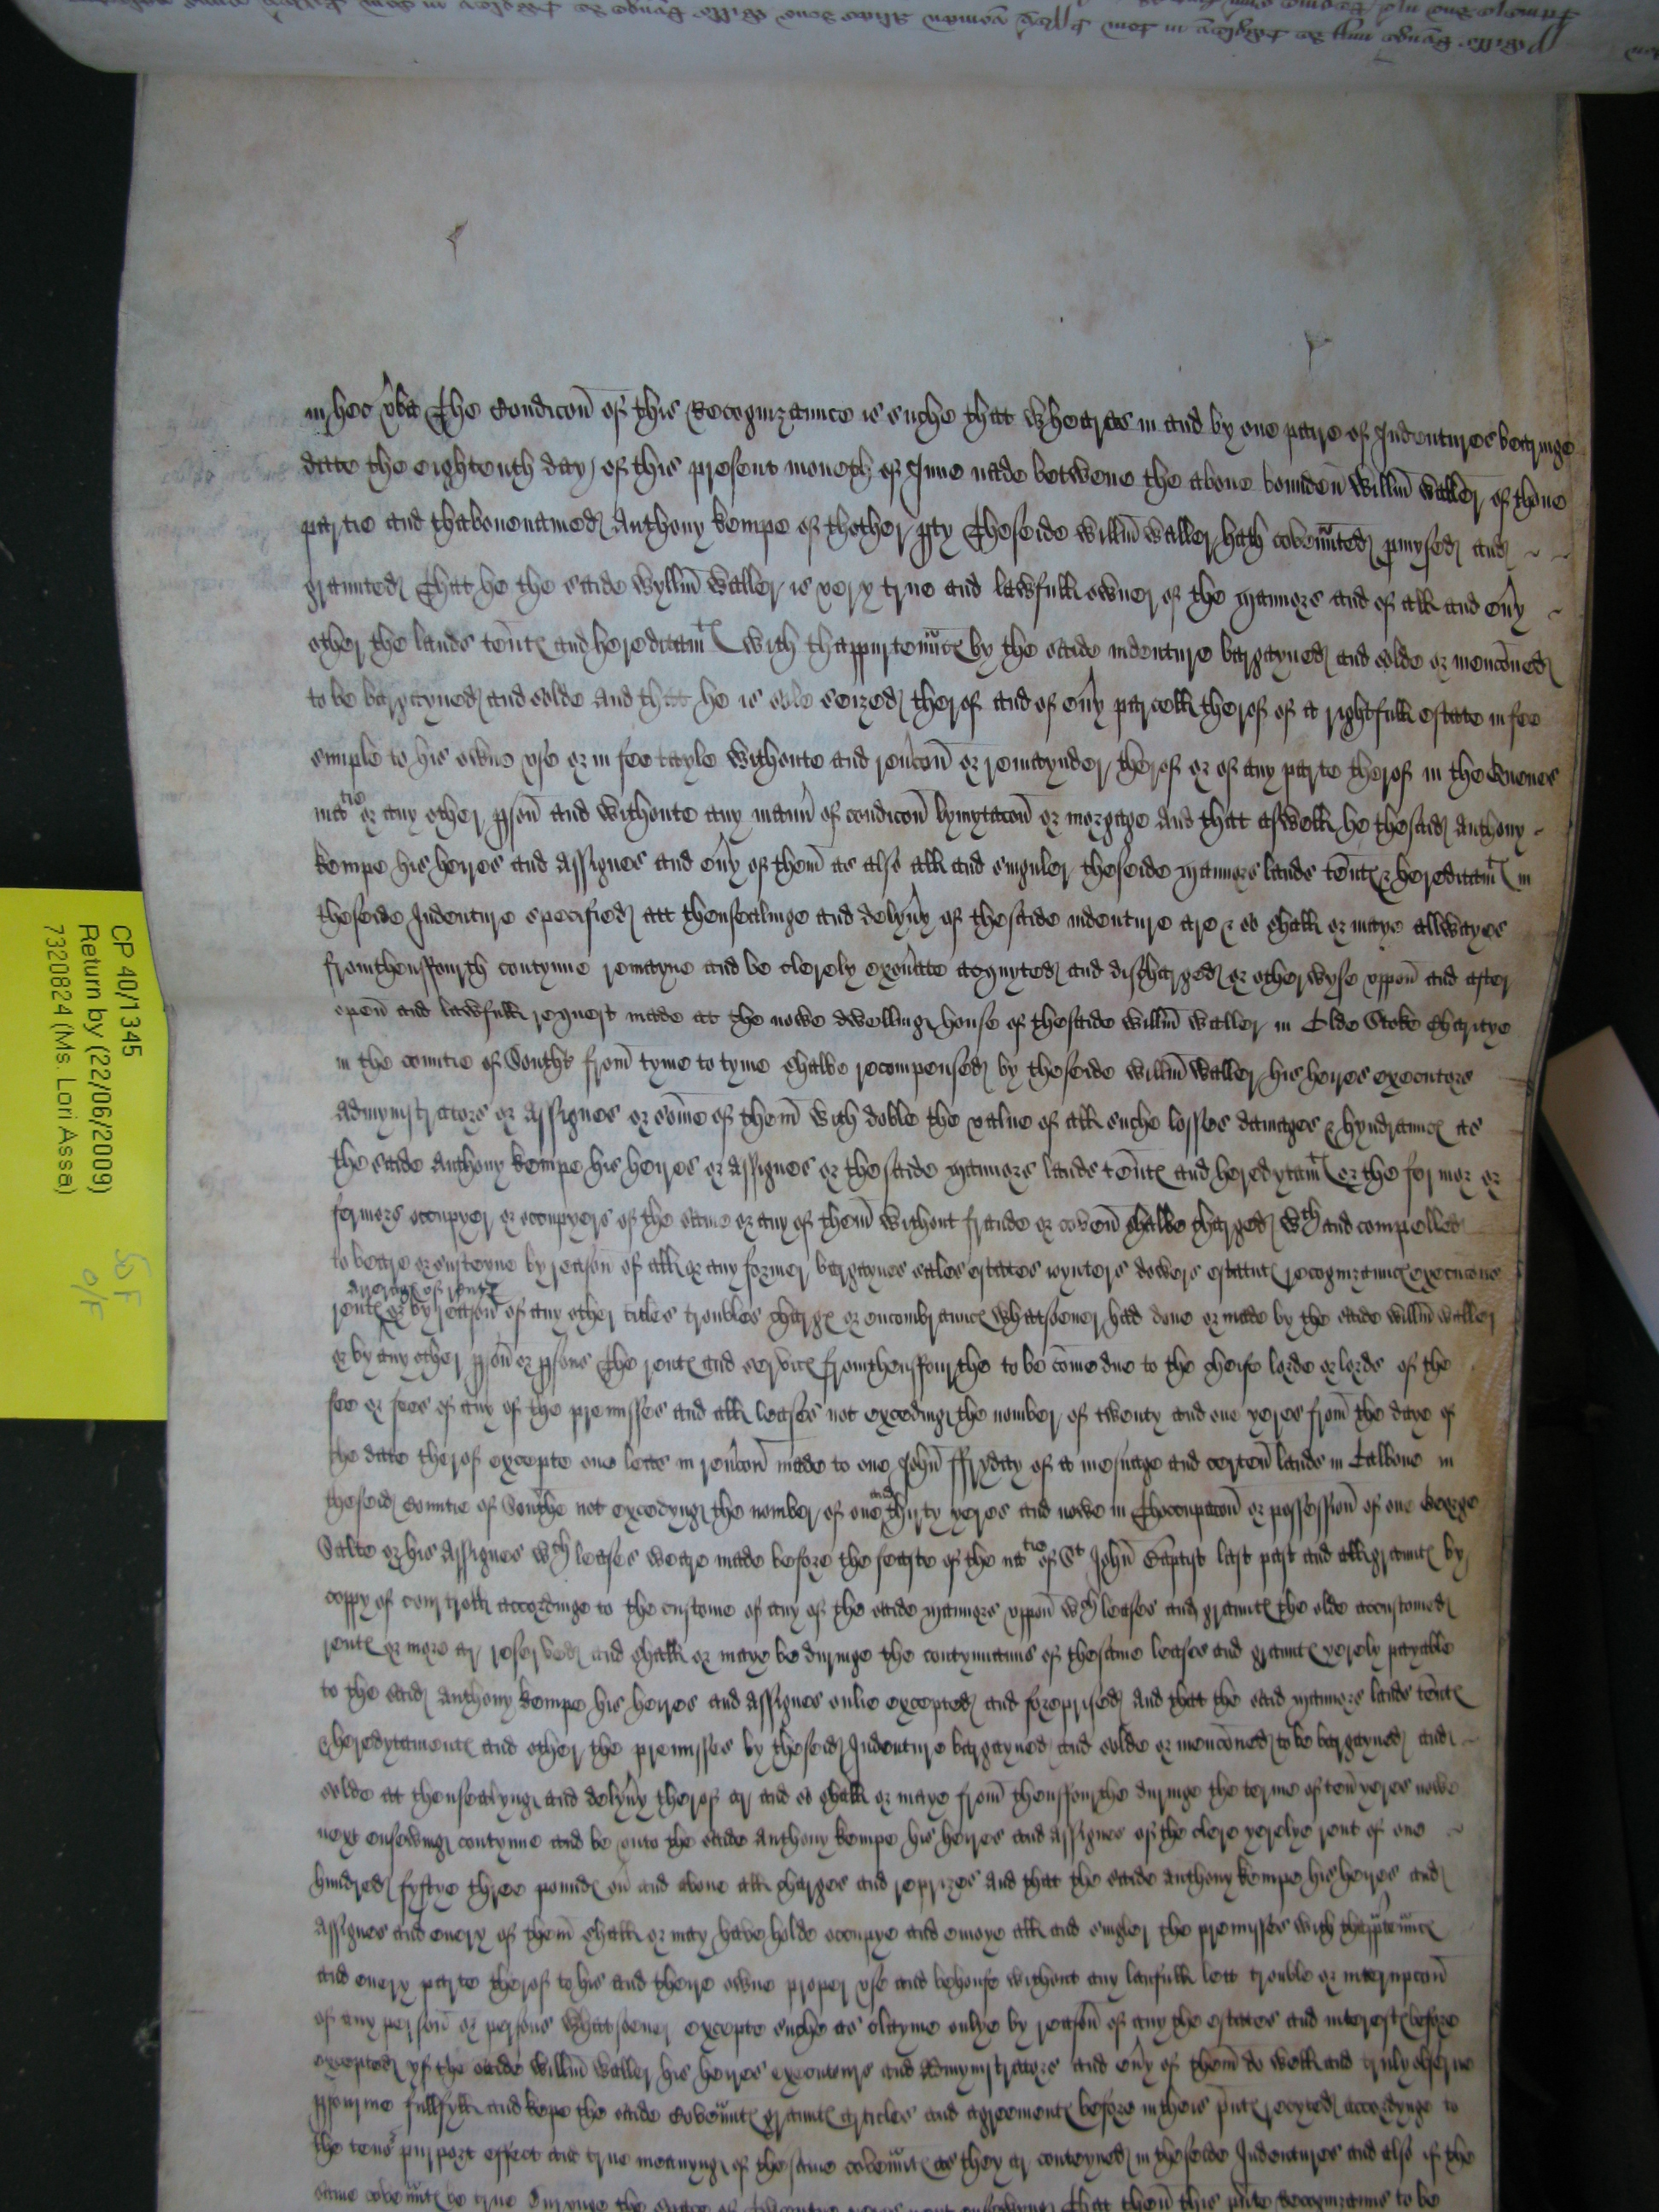 in hec vba The Condicon of this Recognizaunce is suche that Wheareas in and by one paire of Indentures bearinge
date the eightenth day of this present moneth of June made betwene the above bounden Willm Waller of thone
partie and thabovenamed Anthony Kempe of thother pty Theseide Willm Waller hath covenunted pmysed and
graunted That he the saide Wyllm Waller is very true and lawfull owner of the mannors and of all and evy
other the lands tents and hereditamts with thappurtenuncs by the saide indenture bargayned and solde or mencõned
to be bargayned and solde And that he is sole seized therof and of evy parcell therof of a rightfull estate in fee
simple to his owne use or in fee tayle withoute and revcon or remaynder therof or of any parte therof in the Quenes
matie or any other pson and withoute any mann of condicon lymytacon or morgage And that aswell he thesaid Anthony
Kempe his heires and Assignes and evy of them as also all and singuler theseide mannors lands tents & hereditamts in
theseide Indenture specified att thensealinge and delyvy of thesaide indenture are & so shall or maye allwayes
fromthensffourth contynue remayne and be clerely exonate acquyted and discharged or otherwyse uppon and after
open and lawfull request made at the nowe dwelling house of thesaide Willm Waller in Olde Stoke Charitye
in the countie of Southt from tyme to tyme shalbe recompensed by theseide Willm Waller his heires executors
Admynistrators or Assignes or some of them with doble the value of all suche losses damages & hyndrauncs as
the saide Anthony Kempe his heires or Assignes or thesaide mannors lands tents and heredytamts or the fermor or
fermors occupyer or occupyers of the same or any of them without fraude or coven shalbe charged wth and compelled
to beare or susteyne by reason of all or any former bargaynes sales estates joynters dowers estatuts recognizauncs execucons
Arrerags of rents
rents or by reason of any other titles troubles chargs or encombrauncs whatsoever had done or made by the saide Willm Waller
or by any other pson or psons The rents and servics fromthensffourthe to be come due to the cheife lorde or lords of the
fee or fees of any of the premisses and all leases not exceding the nomber of twenty and one yeres from the daye of
the date therof excepte one leas in revcon made to one John ffryday of a mesuage and certen lands in Calbone in
theseid Countie of Southe not excedyng the nomber of one and thirty yeres and nowe in Thoccupacon or possession of one George
Salte or his Assignes wch leases weare made before the feaste of the natie of St John Baptist last past and all graunts by
coppy of court roll accordinge to the custome of any of the saide mannors uppon wch leases and graunts the olde accustomed
rents or more ar reserved and shall or maye be duringe the contynuauns of thesame leases and graunts yerely payable
to the said Anthony Kempe his heires and Assignes onlie excepted and foreprised And that the said mannors lands tents
& heredytaments and other the premisses by theseid Indenture bargayned and solde or menconed to be bargayned and
solde at thensealyng and delyvy therof ar and so shall or maye from thensffourthe duringe the terme of ten yeres nowe
next ensewing contynue and be unto the saide Anthony Kempe his heires and Assignes of the clere yerelye rent of one
hundred fyftye three pounds ov and above all charges and reprizes And that the saide Anthony Kempe his heires and
Assignes and every of them shall or may have holde occupye and enioye all and singler the premisses with thapptenuncs
and every parte therof to his and theire owne proper use and behoufe without any laufull lett trouble or interupcon
of any person or persons whatsoever excepte suche as clayme onlye by reason of any the estates and interests before
excepted yf the saide Willm Waller his heires executors and Admynistrators and evy of them do well and truly observe
pfourme fullfyll and kepe the saide Covenunts graunts articles and agreements before in theis pnts recyted accordynge to
the tenor purport effect and true meanyng of the same covenunts as they ar conteyned in theseide Indentures and also if the
same covenunts be true

CP 40/1345
Return by (22/06/2009)
7320824 (Ms. Lori Assa)
50 F
O/F